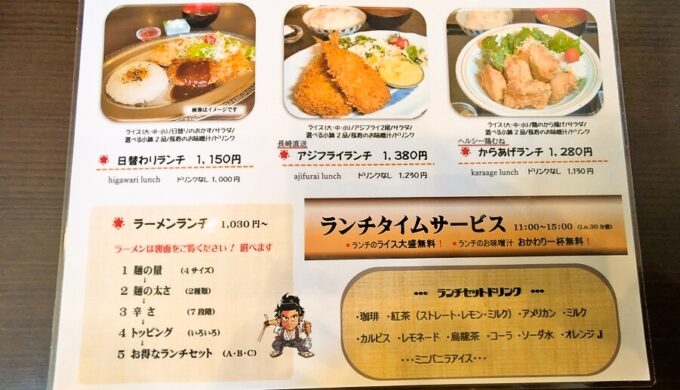 画像はイメージです
ライス(大・中・小)/日替りのおかず/サラダ/
選べる小鉢2品/長寿のお味噌汁/ドリンク
日替わりランチ 1,150円
higawari lunch ドリンクなし 1,000円
ライス(大・中・小)/アジフライ2尾/サラダ/
選べる小鉢2品/長寿のお味噌汁/ドリンク
長崎直送
アジフライランチ 1,380円
ajifurai lunch ドリンクなし 1,230円
ライス(大・中・小)/鶏のから揚げ/サラダ/
選べる小鉢2品/長寿のお味噌汁/ドリンク
ヘルシー鶏むね
からあげランチ 1,280円
karaage lunch ドリンクなし 1,130円
ラーメンランチ 1,030円~
ラーメンは裏面をご覧ください! 選べます
1 麺の量 (4サイズ)
↓
2 麺の太さ (2種類)
↓
3 辛さ (7段階)
↓
4 トッピング (いろいろ)
↓
5 お得なランチセット (A・B・C)
ランチタイムサービス 11:00~15:00 (Lo.30分前)
*ランチのライス大盛無料! *ランチのお味噌汁 おかわり一杯無料!
ランチセットドリンク
・珈琲 ・紅茶(ストレート・レモン・ミルク)・アメリカン ・ミルク
・カルピス ・レモネード ・烏龍茶 ・コーラ ・ソーダ水 ・オレンジJ
・・・ミニバニラアイス・・・